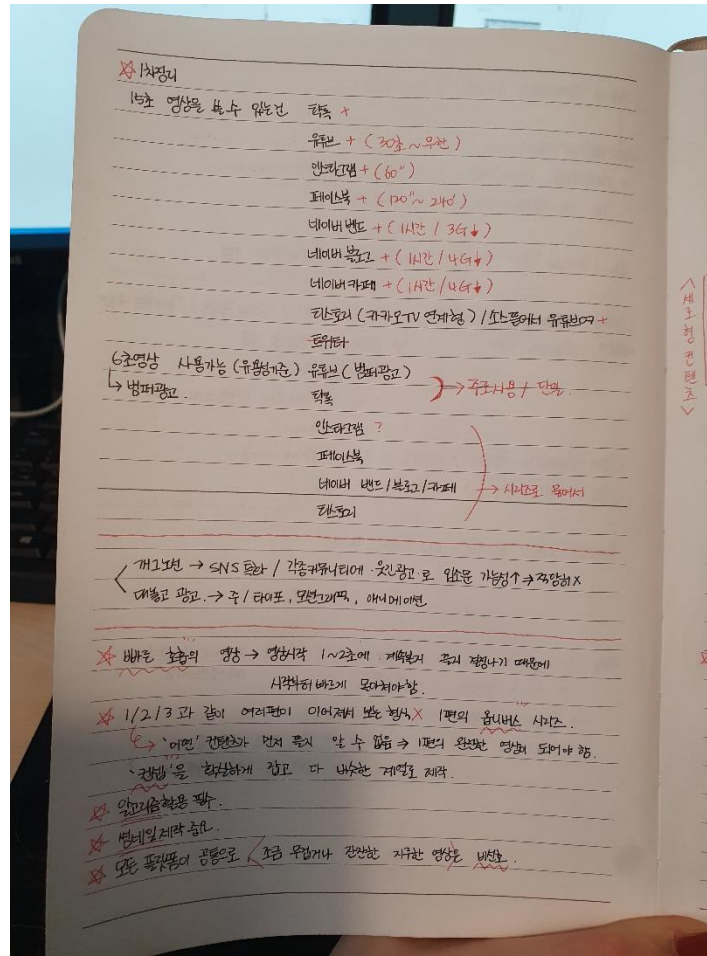 ☆ 1차정리
15초 영상을 쓸 수 있는건 틱톡 +
유튜브 + (30초~무한)
인스타그램 + (60")
페이스북 + (120"~240')
네이버 밴드 + (1시간 / 3G↓)
네이버 블로그 + (1시간 / 4G↓)
네이버 카페 + (1시간 / 4G↓)
티스토리 (카카오TV 연계형) / 소스퍼서 유튜브여 +
트위터
6초영상 사용가능 (유용성기준) 유튜브 (범퍼광고)
↳ 범퍼광고. 틱톡 → 주로사용 / 단일.
인스타그램 ?
페이스북
네이버 밴드 / 블로그 / 카페 → 시리즈로 묶어서
티스토리
개그노선 → SNS 특화 / 각종커뮤니티에 '웃긴광고'로 입소문 가능성↑ → 적당히 X
대놓고 광고. → 주 / 타이포, 모션그래픽, 애니메이션
☆ 빠른 호흡의 영상 → 영상시작 1~2초에 계속볼지 끌지 결정나기 때문에
시작부터 빠르게 몰아쳐야함.
☆ 1/2/3 과 같이 여러편이 이어져서 보는 형식 X 1편의 옴니버스 시리즈.
↳ '어떤' 컨텐츠가 먼저 뜰지 알 수 없음 → 1편의 완전한 영상이 되어야 함.
'컨셉'을 확실하게 잡고 다 비슷한 계열로 제작.
☆ 알고리즘활용 필수.
☆ 썸네일 제작 중요.
☆ 모든 플랫폼이 공통으로 조금 무겁거나 잔잔한 지루한 영상은 비선호.
<세로형 컨텐츠>